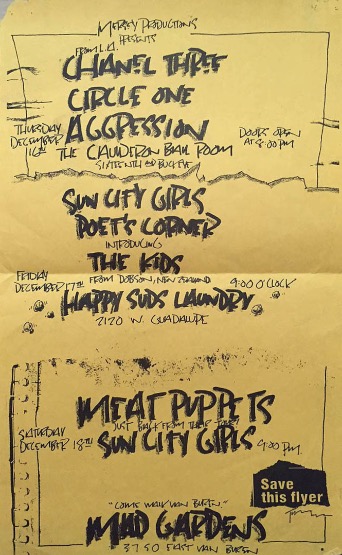 MERSEY PRODUCTIONS
PRESENTS
FROM L.A.
CHANEL THREE
CIRCLE ONE
AGGRESSION
THURSDAY
DECEMBER
16TH
DOORS OPEN
AT 8:00 PM
THE CALDERON BALL ROOM
SIXTEENTH AND BUCKEYE
SUN CITY GIRLS
POET'S CORNER
INTRODUCING
THE KIDS
FROM DOBSON, NEW ZEALAND
FRIDAY
DECEMBER 17TH
9:00 O'CLOCK
HAPPY SUDS LAUNDRY
2120 W. GUADALUPE
MEAT PUPPETS
JUST BACK FROM THEIR TOUR
SUN CITY GIRLS
SATURDAY
DECEMBER 18TH
9:00 P.M.
Save
this flyer
"COME WALK VAN BUREN"
MAD GARDENS
3750 EAST VAN BUREN